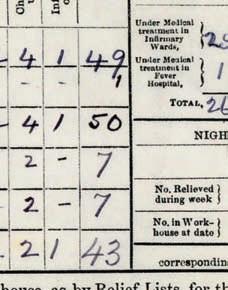 Ch
Inf
Under Medical
treatment in
Infirmary
Wards,
- 4 1 49
Under Medical
treatment in
Fever
Hospital,
- - 1
TOTAL, 26
- 4 1 50
NIGH
2 - 7
No. Relieved
during week
- 2 - 7
No. in Work-
house at date
- 2 1 43
correspondin
house, as by Relief Lists, for th